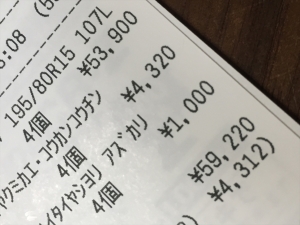 5:08 (5
195/80R15 107L
4個 ¥53,900
ヤクミカエ・コウガンコウチン
4個 ¥4,320
イタイヤショリ アズカリ
4個 ¥1,000
¥59,220
¥4,312)